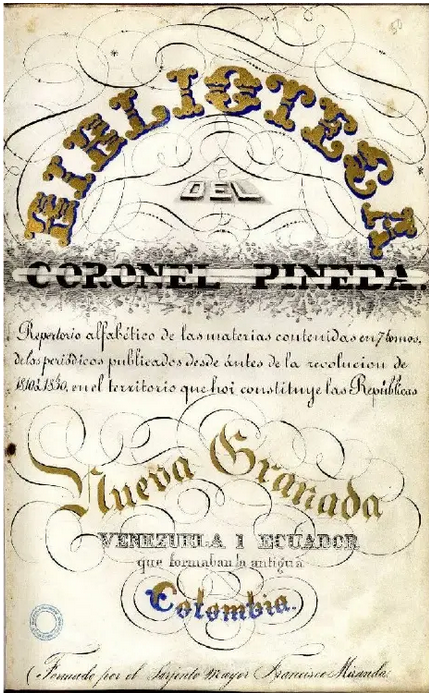 BIBLIOTECA
DEL
CORONEL PINEDA.
Repertorio alfabético de las materias contenidas en 7 tomos,
de los periódicos publicados desde ántes de la revolucion de
1810 á 1850, en el territorio que hoi constituye las Repúblicas
Nueva Granada
VENEZUELA I ECUADOR
que formaban la antigua
Colombia.
(Formado por el Sarjento Mayor Francisco Miranda.